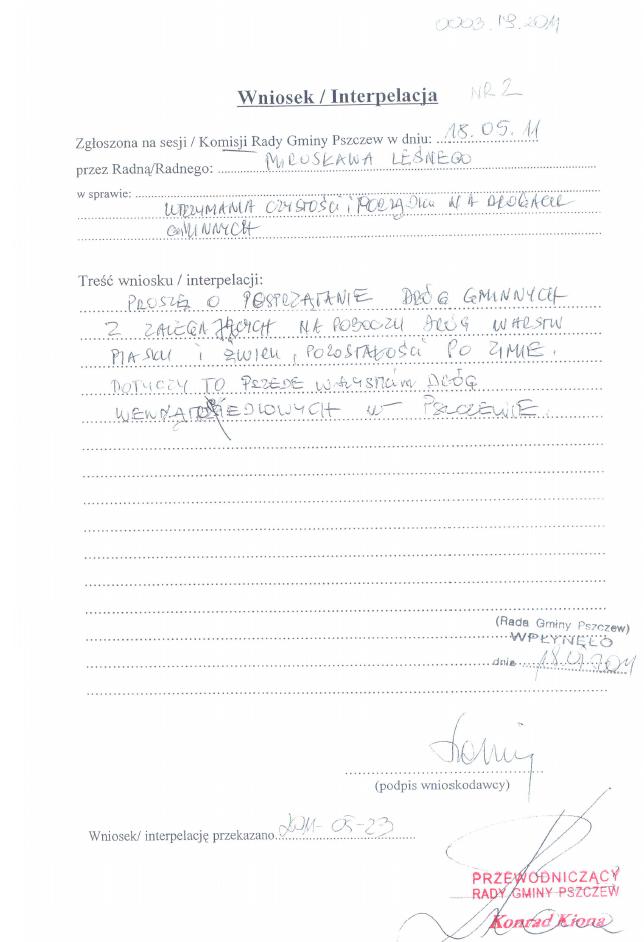 0003.19.2011
Wniosek / Interpelacja NR 2
Zgłoszona na sesji / Komisji Rady Gminy Pszczew w dniu: 18.05.11
przez Radną/Radnego: MIROSŁAWA LEŚNEGO
w sprawie:
UTRZYMANIA CZYSTOŚCI I PORZĄDKU NA DROGACH
GMINNYCH
Treść wniosku / interpelacji:
PROSZĘ O POSPRZĄTANIE DRÓG GMINNYCH
Z ZALEGAJĄCYCH NA POBOCZU DRÓG WARSTW
PIASKU I ŻWIRU, POZOSTAŁOŚCI PO ZIMIE.
DOTYCZY TO PRZEDE WSZYSTKIM DRÓG
WEWNĄTRZ OSIEDLOWYCH W PSZCZEWIE.
(Rada Gminy Pszczew)
WPŁYNĘŁO
dnia 18.05.2011
(podpis wnioskodawcy)
Wniosek/ interpelację przekazano 2011-05-23
PRZEWODNICZĄCY
RADY GMINY PSZCZEW
Konrad Kiona